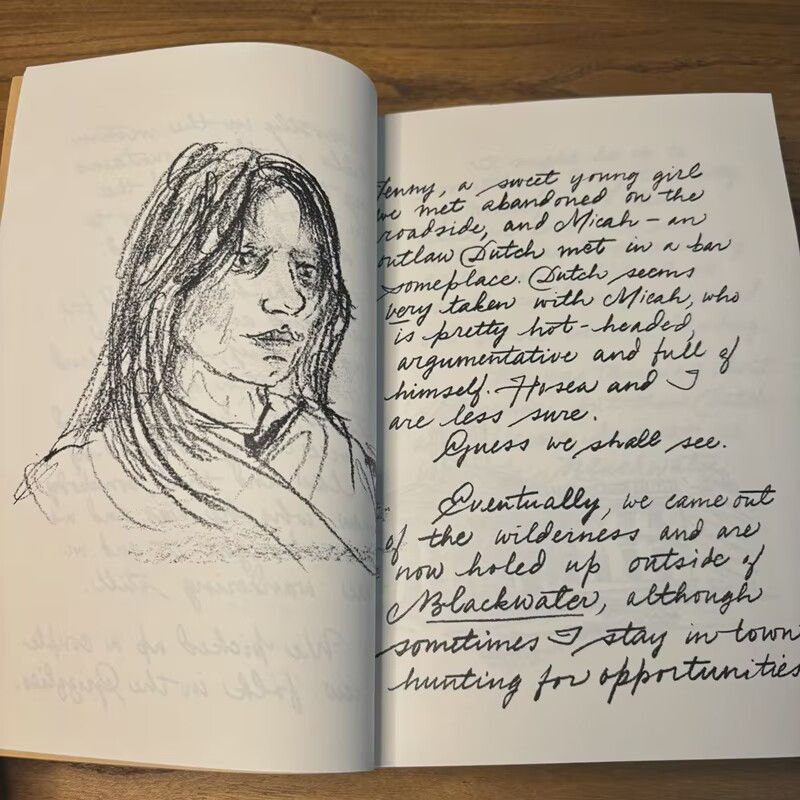 Jenny, a sweet young girl
we met abandoned on the
roadside, and Micah - an
outlaw Dutch met in a bar
someplace. Dutch seems
very taken with Micah, who
is pretty hot-headed,
argumentative and full of
himself. Hosea and I
are less sure.
Guess we shall see.
Eventually, we came out
of the wilderness and are
now holed up outside of
Blackwater, although
sometimes I stay in town
hunting for opportunities